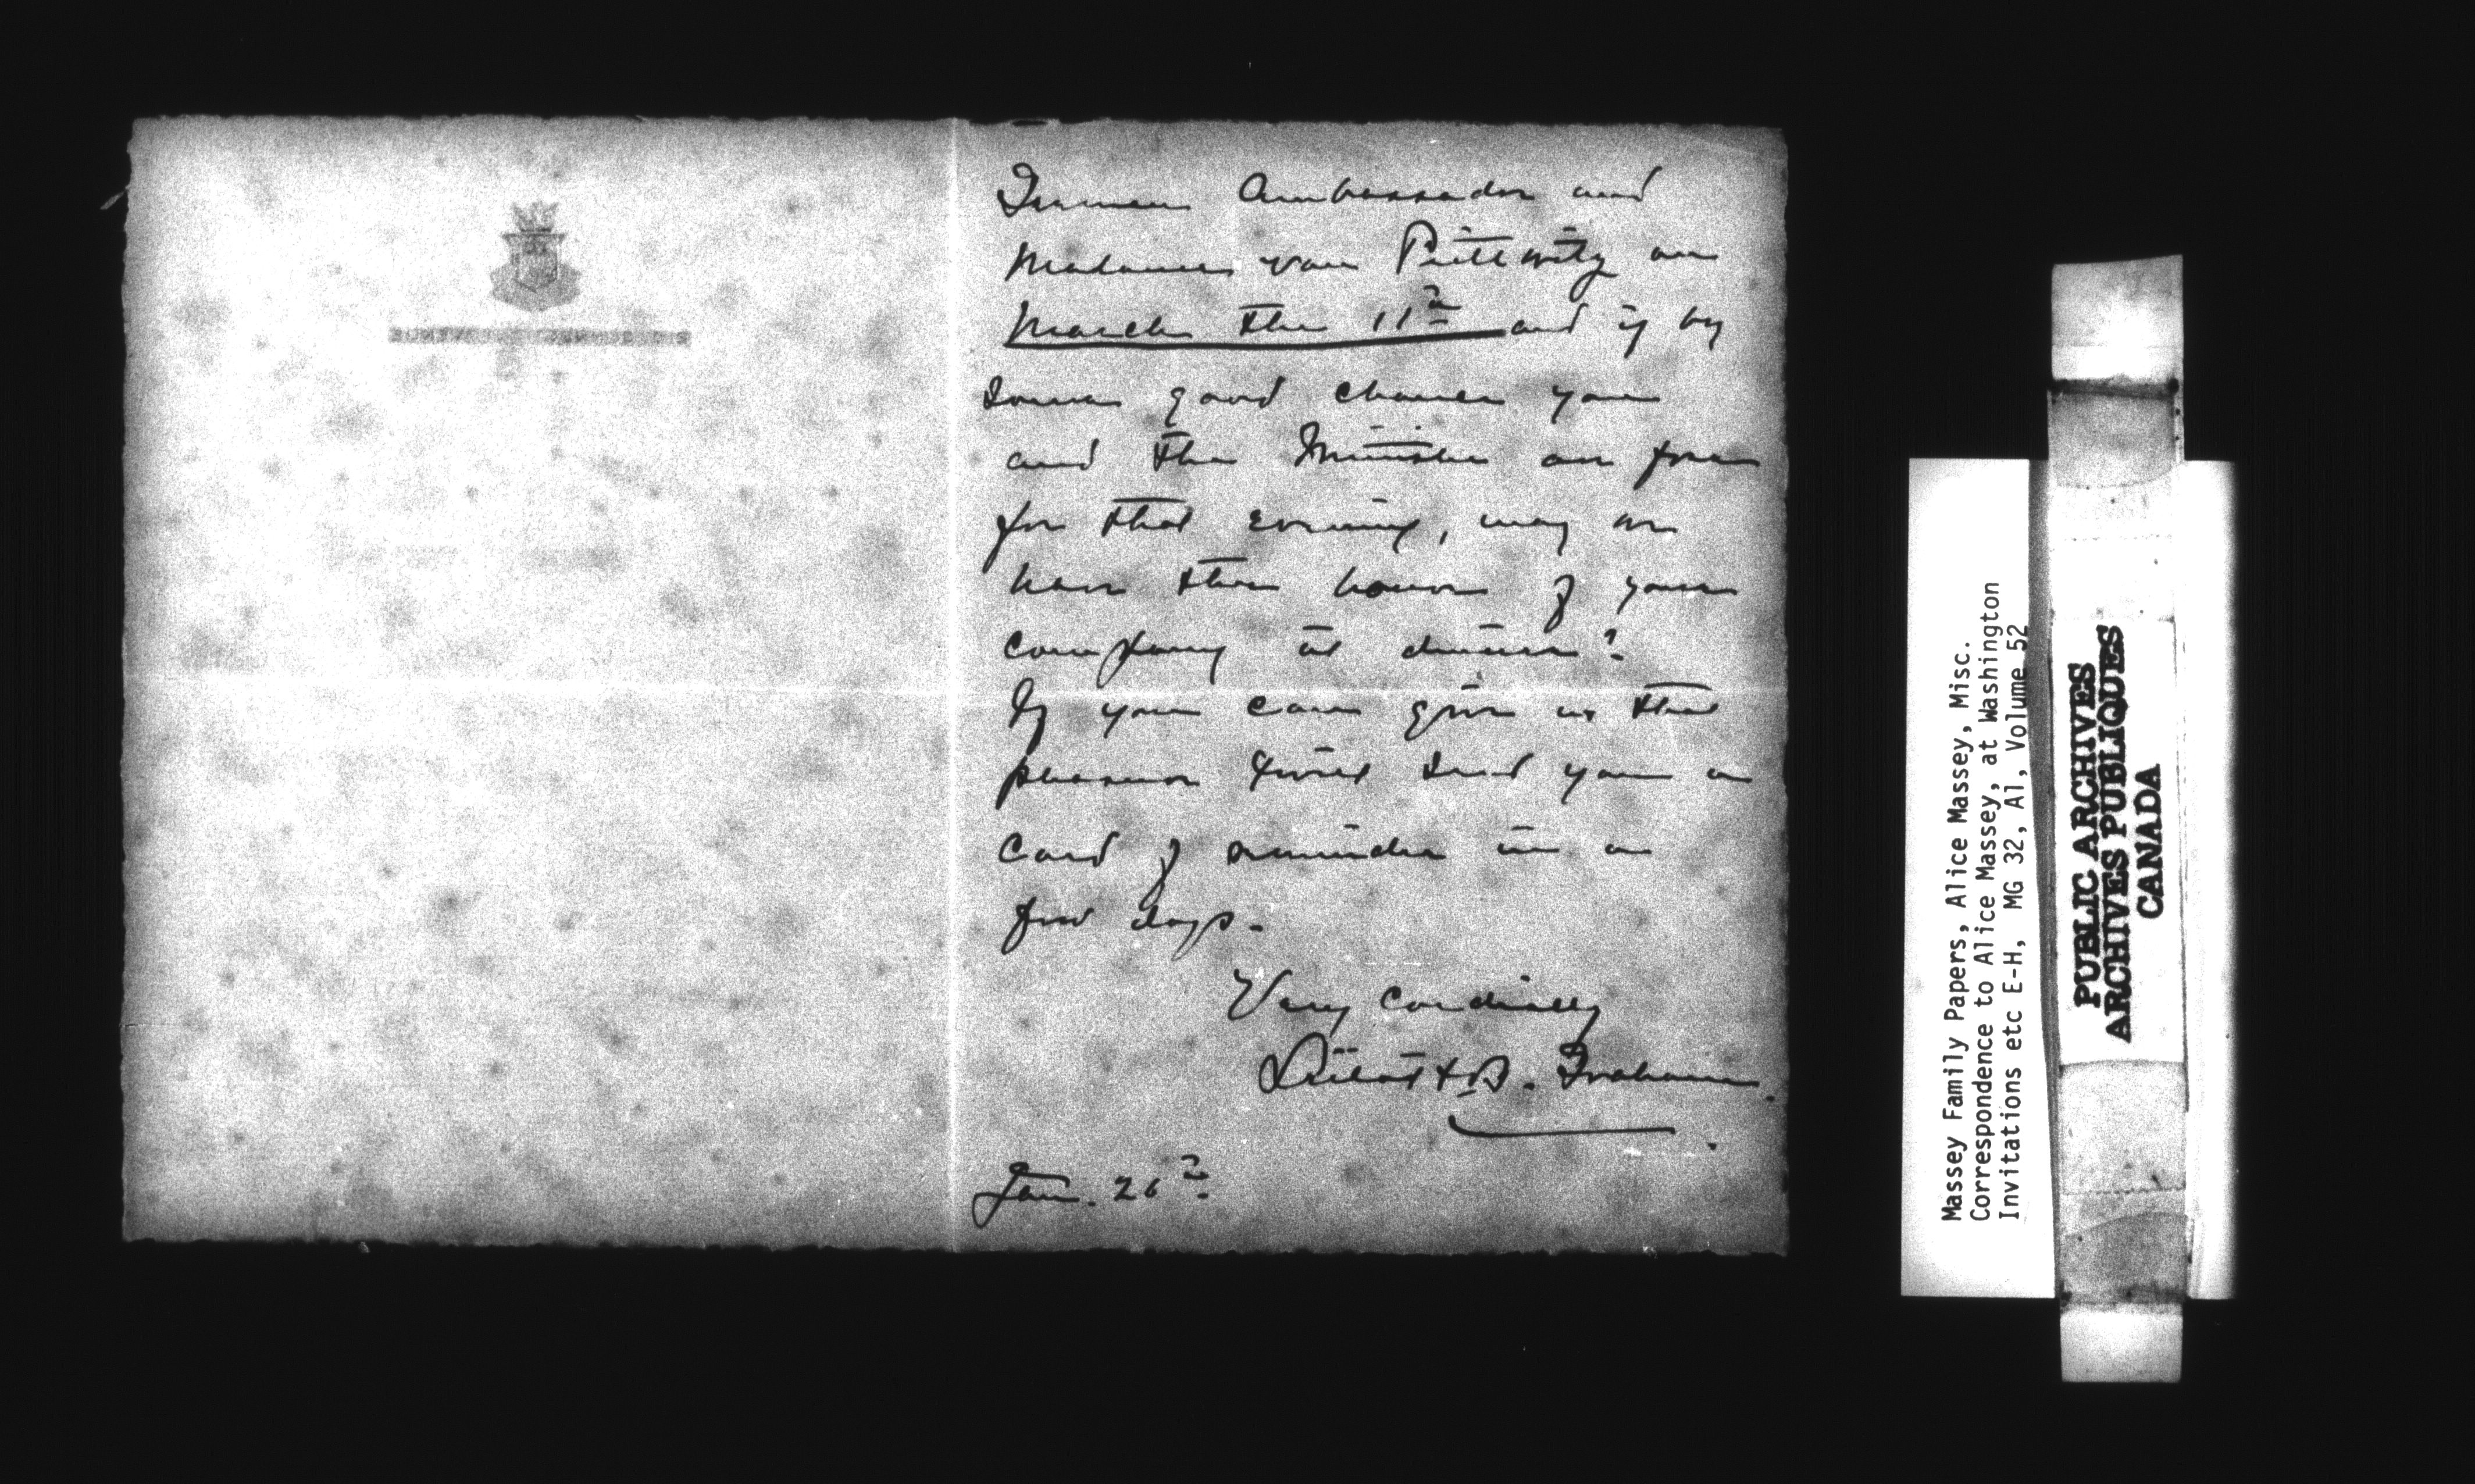 German Ambassador and
Madame von Prittwitz on
March the 11th and if by
some good chance you
and the Minister are free
for that evening, may we
have the honor of your
company at dinner?
If you can give us this
pleasure I will send you a
card of reminder in a
few days.
Very cordially
B. Graham.
Jan. 26th
Massey Family Papers, Alice Massey, Misc.
Correspondence to Alice Massey, at Washington
Invitations etc E-H, MG 32, A1, Volume 52
PUBLIC ARCHIVES
ARCHIVES PUBLIQUES
CANADA